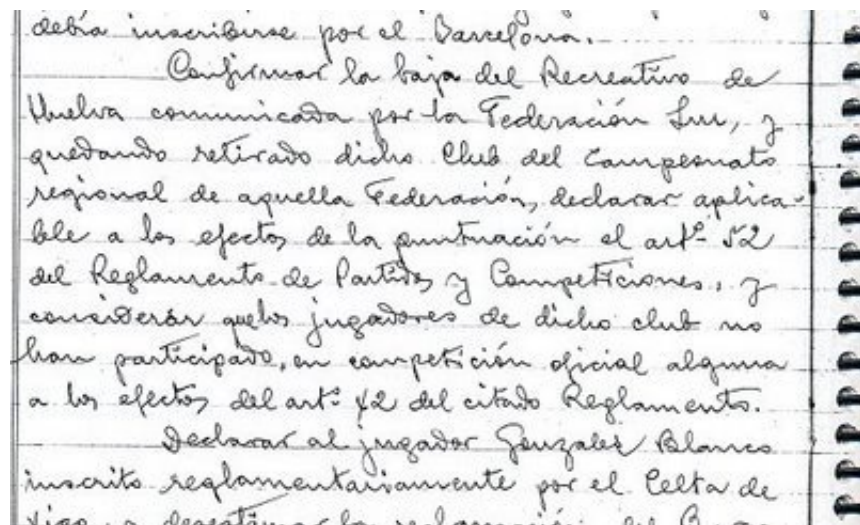 debía inscribirse por el Barcelona.
Confirmar la baja del Recreativo de
Huelva comunicada por la Federación Sur, y
quedando retirado dicho Club del Campeonato
regional de aquella Federación, declarar aplica-
ble a los efectos de la puntuación el artº 52
del Reglamento de Partidos y Competiciones, y
considerar que los jugadores de dicho club no
han participado, en competición oficial alguna
a los efectos del artº 42 del citado Reglamento.
Declarar al jugador González Blanco
inscrito reglamentariamente por el Celta de
Vigo y desestimar la reclamación del